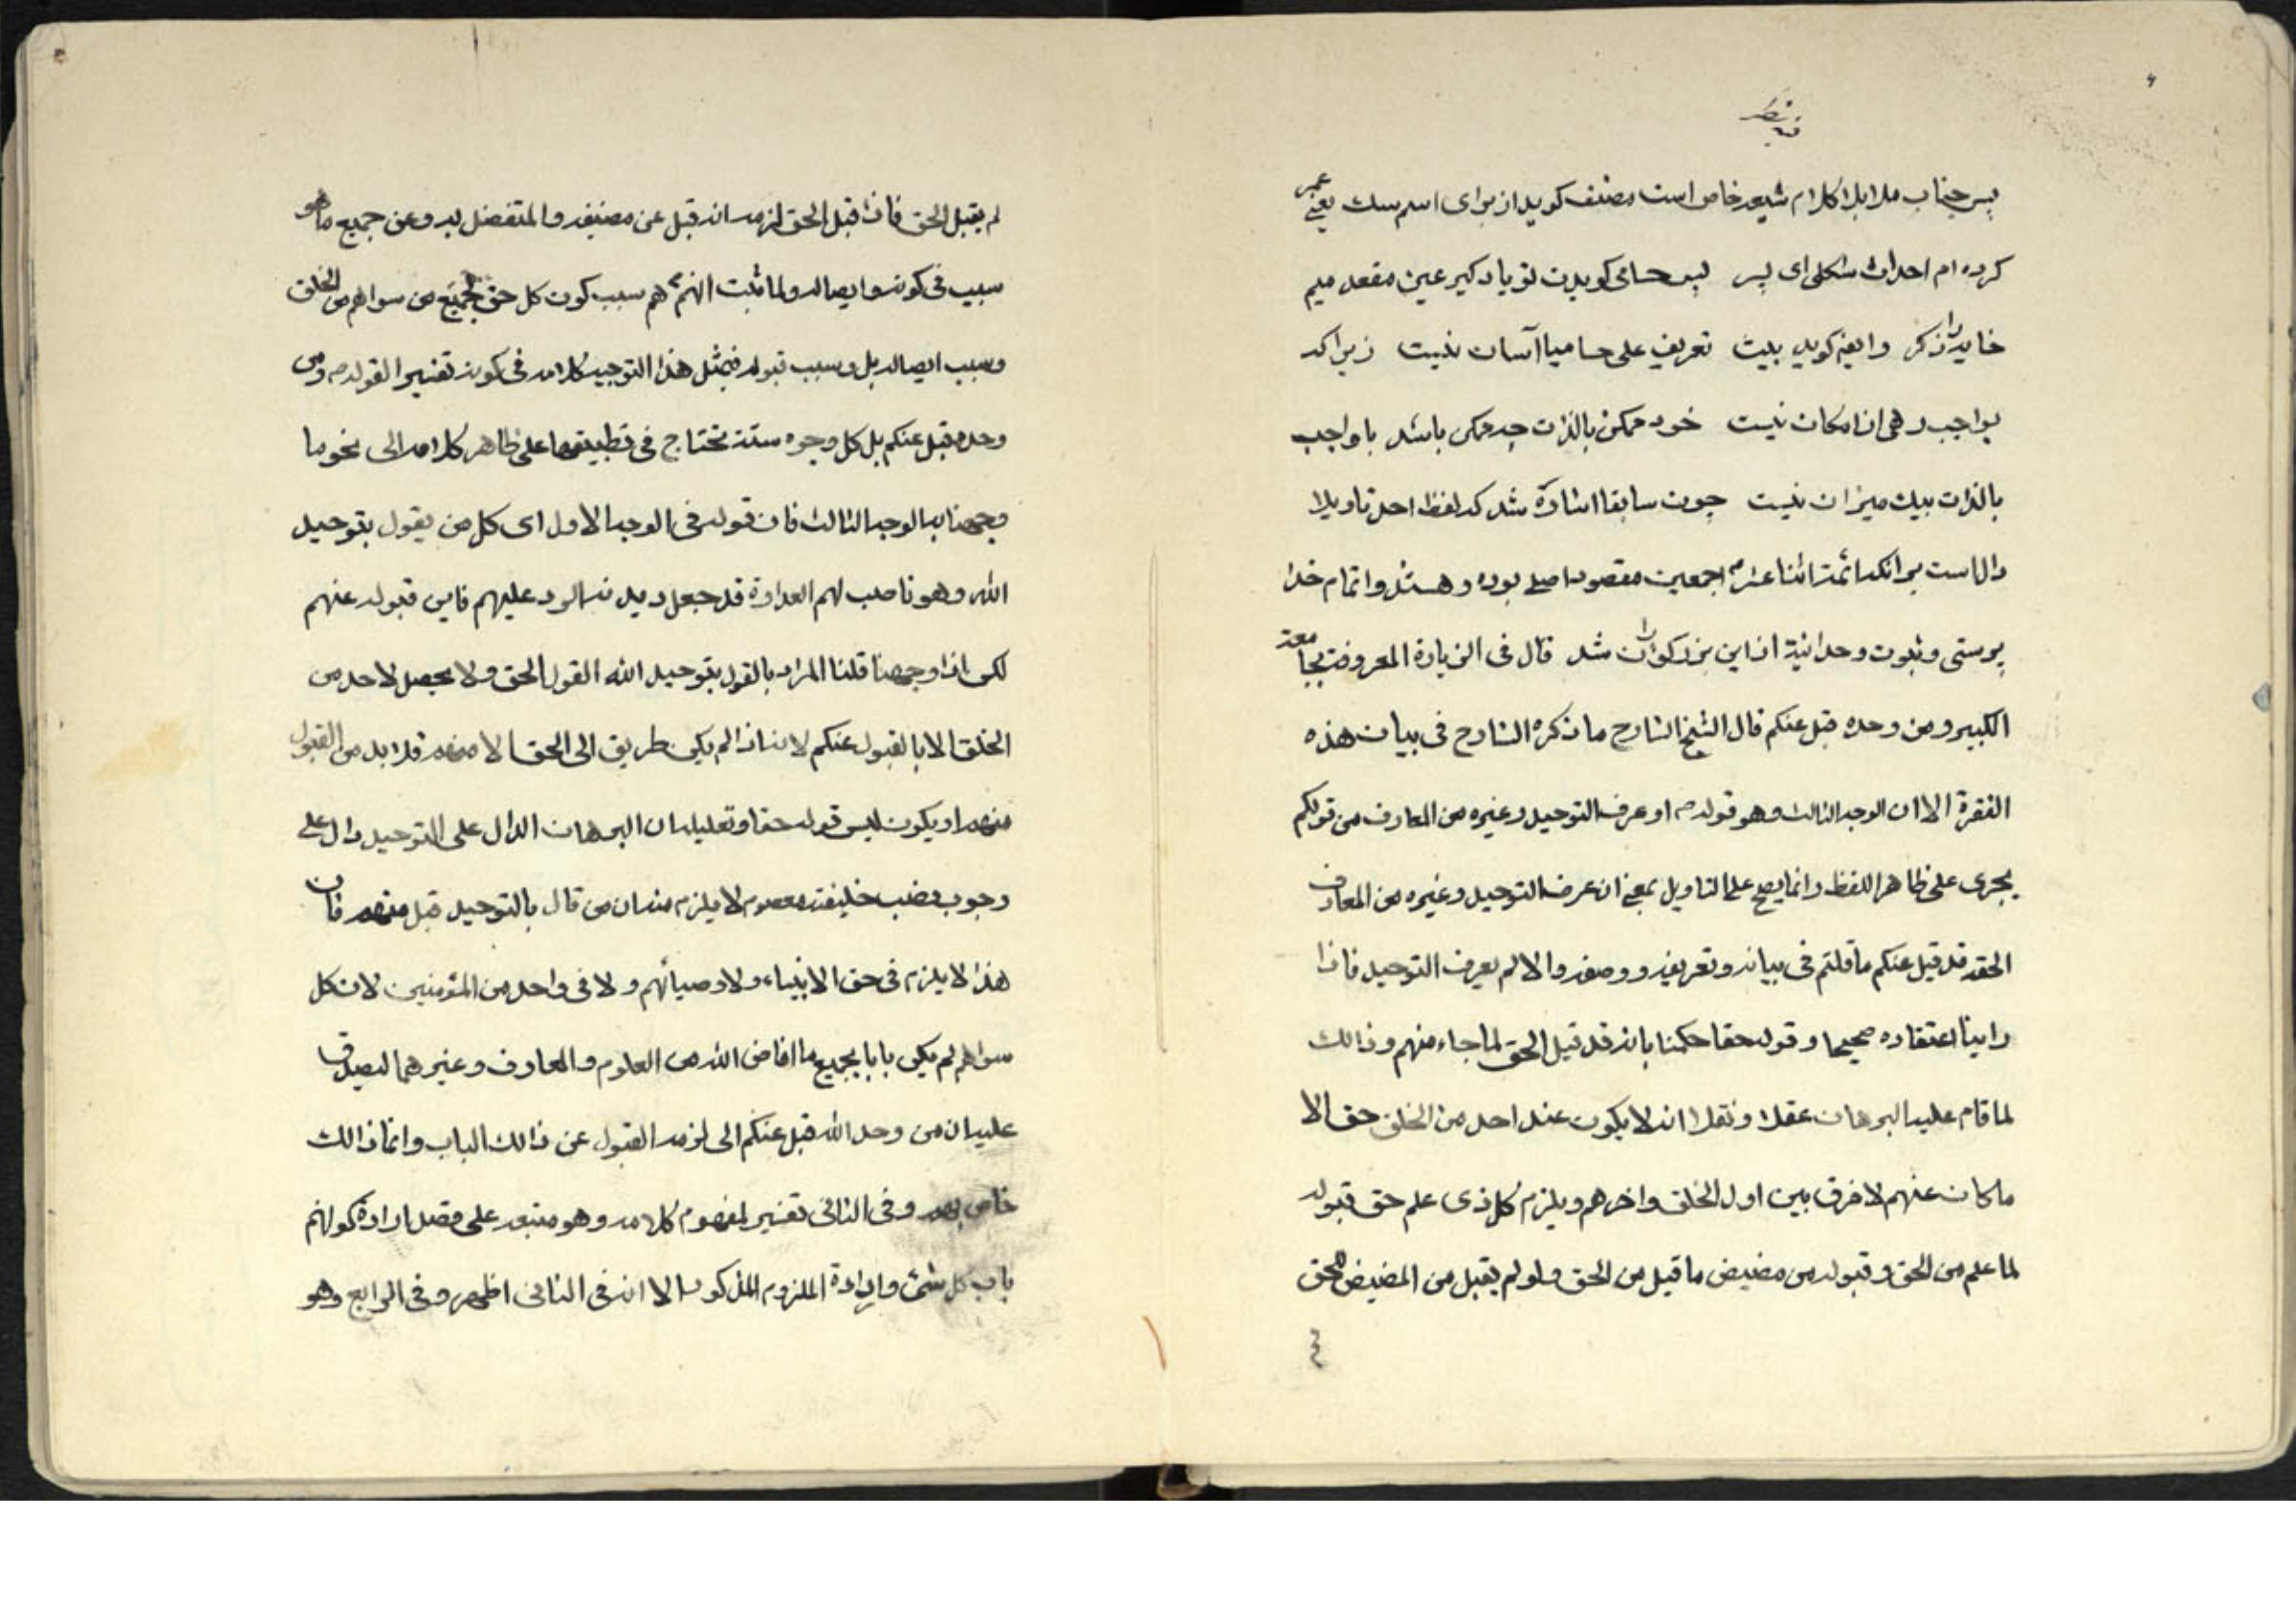 فيه نظر
پس جناب ملا بلا كلام شيعه خاص است مصنف كويد از براى اسم سك يعنى عمر
كرده ام احداث شكلى اى پسر پس حسامى كويدت تو ياد كير عين مقعد ميم
خايه را ذكر وايضا كويد بليت تعريف على حساميا آسان نيست زيرا كه
بواجب رهى از امكان نيست خود ممكن بالذات چه ممكن باشد با واجب
بالذات بيك ميزان نيست چون سابقا اشاره شد كه لفظ احد تاويلا
دال است بر انكه ائمه اثنا عشر اجمعين مقصود اصلى بوده و هستند و اتمام خدا
پرستى و ثبوت وحدانية از اين بزركواران شد قال فى الزيارة المعروفة بجامعة
الكبير و من وحده قبل عنكم قال الشيخ الشارح ما ذكره الشارح فى بيان هذه
الفقرة الا ان الوجه الثالث وهو قوله او عرف التوحيد وغيره من المعارف من قولكم
يجرى على ظاهر اللفظ وانما يصح على التاويل بمعنى ان عرف التوحيد وغيره من المعارف
الحقه قد قبل عنكم ما قلتم فى بيانه وتعريفه ووصفه والا لم يعرف التوحيد فاذا
راينا اعتقاده صحيحا وقوله حقا حكمنا بانه قد قبل الحق لما جاء منهم وذالك
لما قام عليه البرهان عقلا ونقلا انه لا يكون عند احد من الخلق حق الا
ما كان عنهم لا فرق بين اول الخلق واخرهم ويلزم كل ذى علم حق قبوله
لما علم من الحق وقبوله من مفيض ما قبل من الحق ولو لم يقبل من المفيض للحق
لم يقبل الحق فاذا قبل الحق لزمه انه قبل عن مفيضه والمتفضل به وعن جميع ما هو
سبب فى كونه وايصاله ولما ثبت انهم هم سبب كون كل حق لجميع من سواهم من الخلق
وسبب ايصاله بل وسبب قبوله فبمثل هذا التوجيه كلامه فى كونه تفسيرا لقوله ومن
وحده قبل عنكم بل كل وجوه ستة تحتاج فى تطبيقها على ظاهر كلامه الى نحو ما
وجهنا به الوجه الثالث فان قوله فى الوجه الاول اى كل من يقول بتوحيد
الله وهو ناصب لهم العداوة قد جعل ديدنه الرد عليهم فاين قبوله عنهم
لكن اذا وجهنا قلنا المراد بالقول بتوحيد الله القول الحق ولا يحصل لاحد من
الخلق الا بالقبول عنكم لانه اذا لم يكن طريق الى الحق الا منهم فلا بد من القبول
منهم او يكون ليس قوله حقا وتعليله ان البرهان الدال على التوحيد دال على
وجوب نصب خليفة معصوم لا يلزم منه ان من قال بالتوحيد قبل منهم فان
هذا لا يلزم فى حق الانبياء ولا اوصيائهم ولا فى واحد من المؤمنين لان كل
سواهم لم يكن بابا بجميع ما افاض الله من العلوم والمعارف وغيرهما ليصدق
عليه ان من وحد الله قبل عنكم الى لزمه القبول عن ذالك الباب وانما ذالك
خاص بهم وفى الثانى تفسير لمفهوم كلامه وهو متبعه على قصد ارادة كولهم
باب كل شئ وارادة الملزوم المذكور الا انه فى الثانى اظهر وفى الرابع وهو